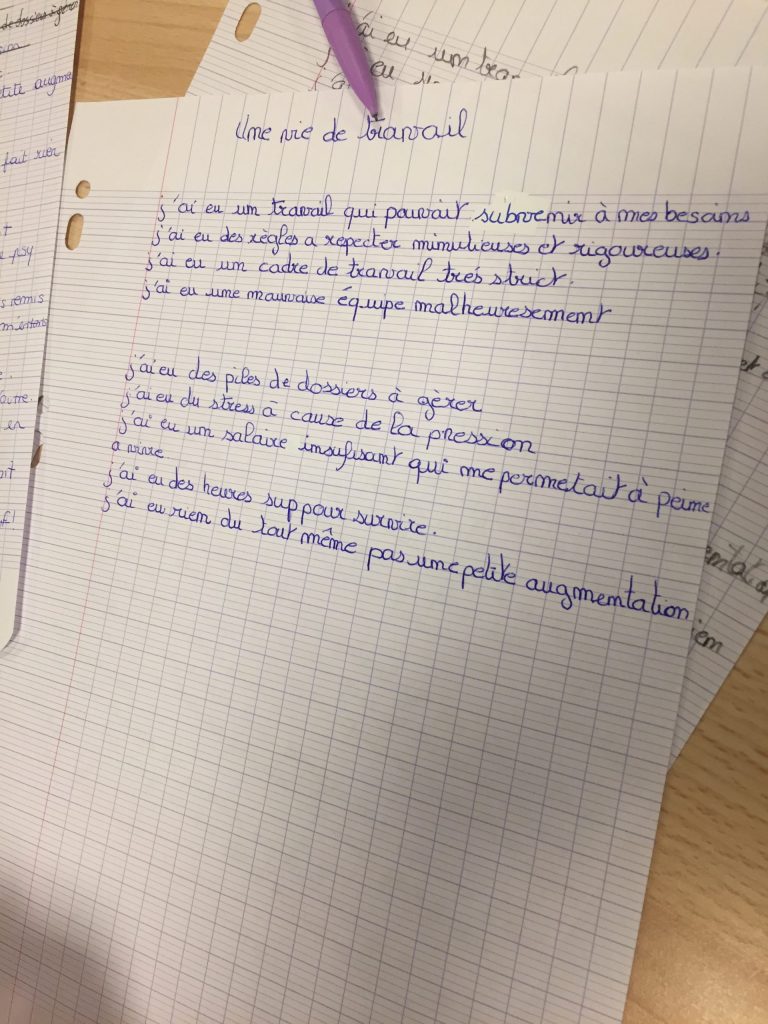 de dossiers à gérer
tite augme
fait rien
psy
s remis
m'entend
outre.
en
j'ai eu un trav
eu
Une vie de travail
j'ai eu un travail qui pouvait subvenir à mes besoins
j'ai eu des règles a repecter minulieuses et rigoureuses.
j'ai eu un cadre de travail trés strict.
j'ai eu une mauvaise équipe malheuresement
j'ai eu des piles de dossiers à gèrer
j'ai eu du stress à cause de la pression
j'ai eu un salaire insufisant qui me permetait à peine
a vivre
j'ai eu des heures sup pour survire.
j'ai eu rien du tout même pas une petite augmentation